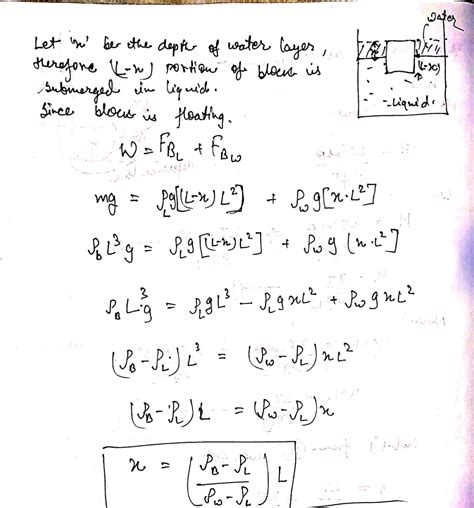 water
Let 'x' be the depth of water layer,
therefore (L-x) portion of block is
submerged in liquid.
Since block is floating.
(L-x)
- Liquid.
W = F_{B_L} + F_{B_W}
mg = ρ_L g[(L-x)L²] + ρ_w g[x·L²]
ρ_b L³ g = ρ_L g[(L-x)L²] + ρ_w g (x·L²]
ρ_B L³·g = ρ_L g L³ - ρ_L g x L² + ρ_w g x L²
(ρ_B - ρ_L) L³ = (ρ_w - ρ_L) x L²
(ρ_B - ρ_L) L = (ρ_w - ρ_L) x
x = (ρ_B - ρ_L / ρ_w - ρ_L) L